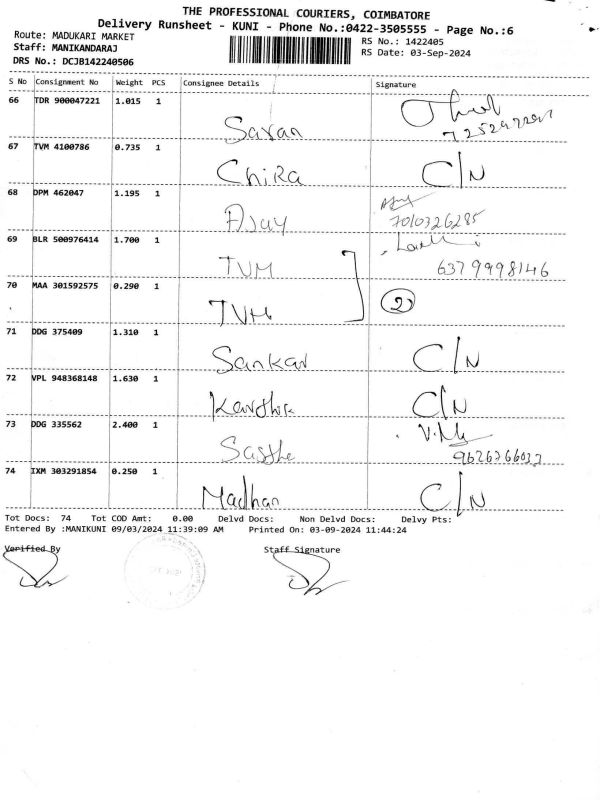 THE PROFESSIONAL COURIERS, COIMBATORE
Delivery Runsheet - KUNI - Phone No.:0422-3505555 - Page No.:6
Route: MADUKARI MARKET
RS No.: 1422405
Staff: MANIKANDARAJ
RS Date: 03-Sep-2024
DRS No.: DCJB142240506
S No Consignment No Weight PCS Consignee Details Signature
66 TDR 900047221 1.015 1
Savan
67 TVM 4100786 0.735 1
Chika C/N
68 DPM 462047 1.195 1
Ajay 7010326285
69 BLR 500976414 1.700 1
TVM 6379998146
70 MAA 301592575 0.290 1
TVM 2
71 DDG 375409 1.310 1
Sankar C/N
72 VPL 948368148 1.630 1
Karthik C/N
73 DDG 335562 2.400 1
Sasthe
74 IXM 303291854 0.250 1
Madhan C/N
Tot Docs: 74 Tot COD Amt: 0.00 Delvd Docs: Non Delvd Docs: Delvy Pts:
Entered By :MANIKUNI 09/03/2024 11:39:09 AM Printed On: 03-09-2024 11:44:24
Verified By Staff Signature